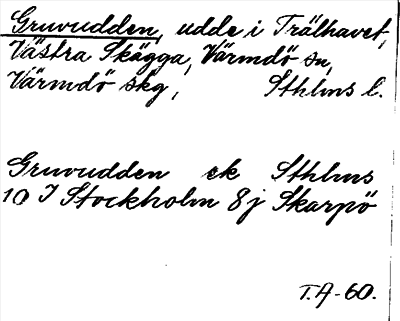 Gruvudden, udde i Trälhavet,
Västra Skägga, Värmdö sn,
Värmdö skg, Sthlms l.
Gruvudden ek Sthlms
10 I Stockholm 8j Skarpö
T.A-60.